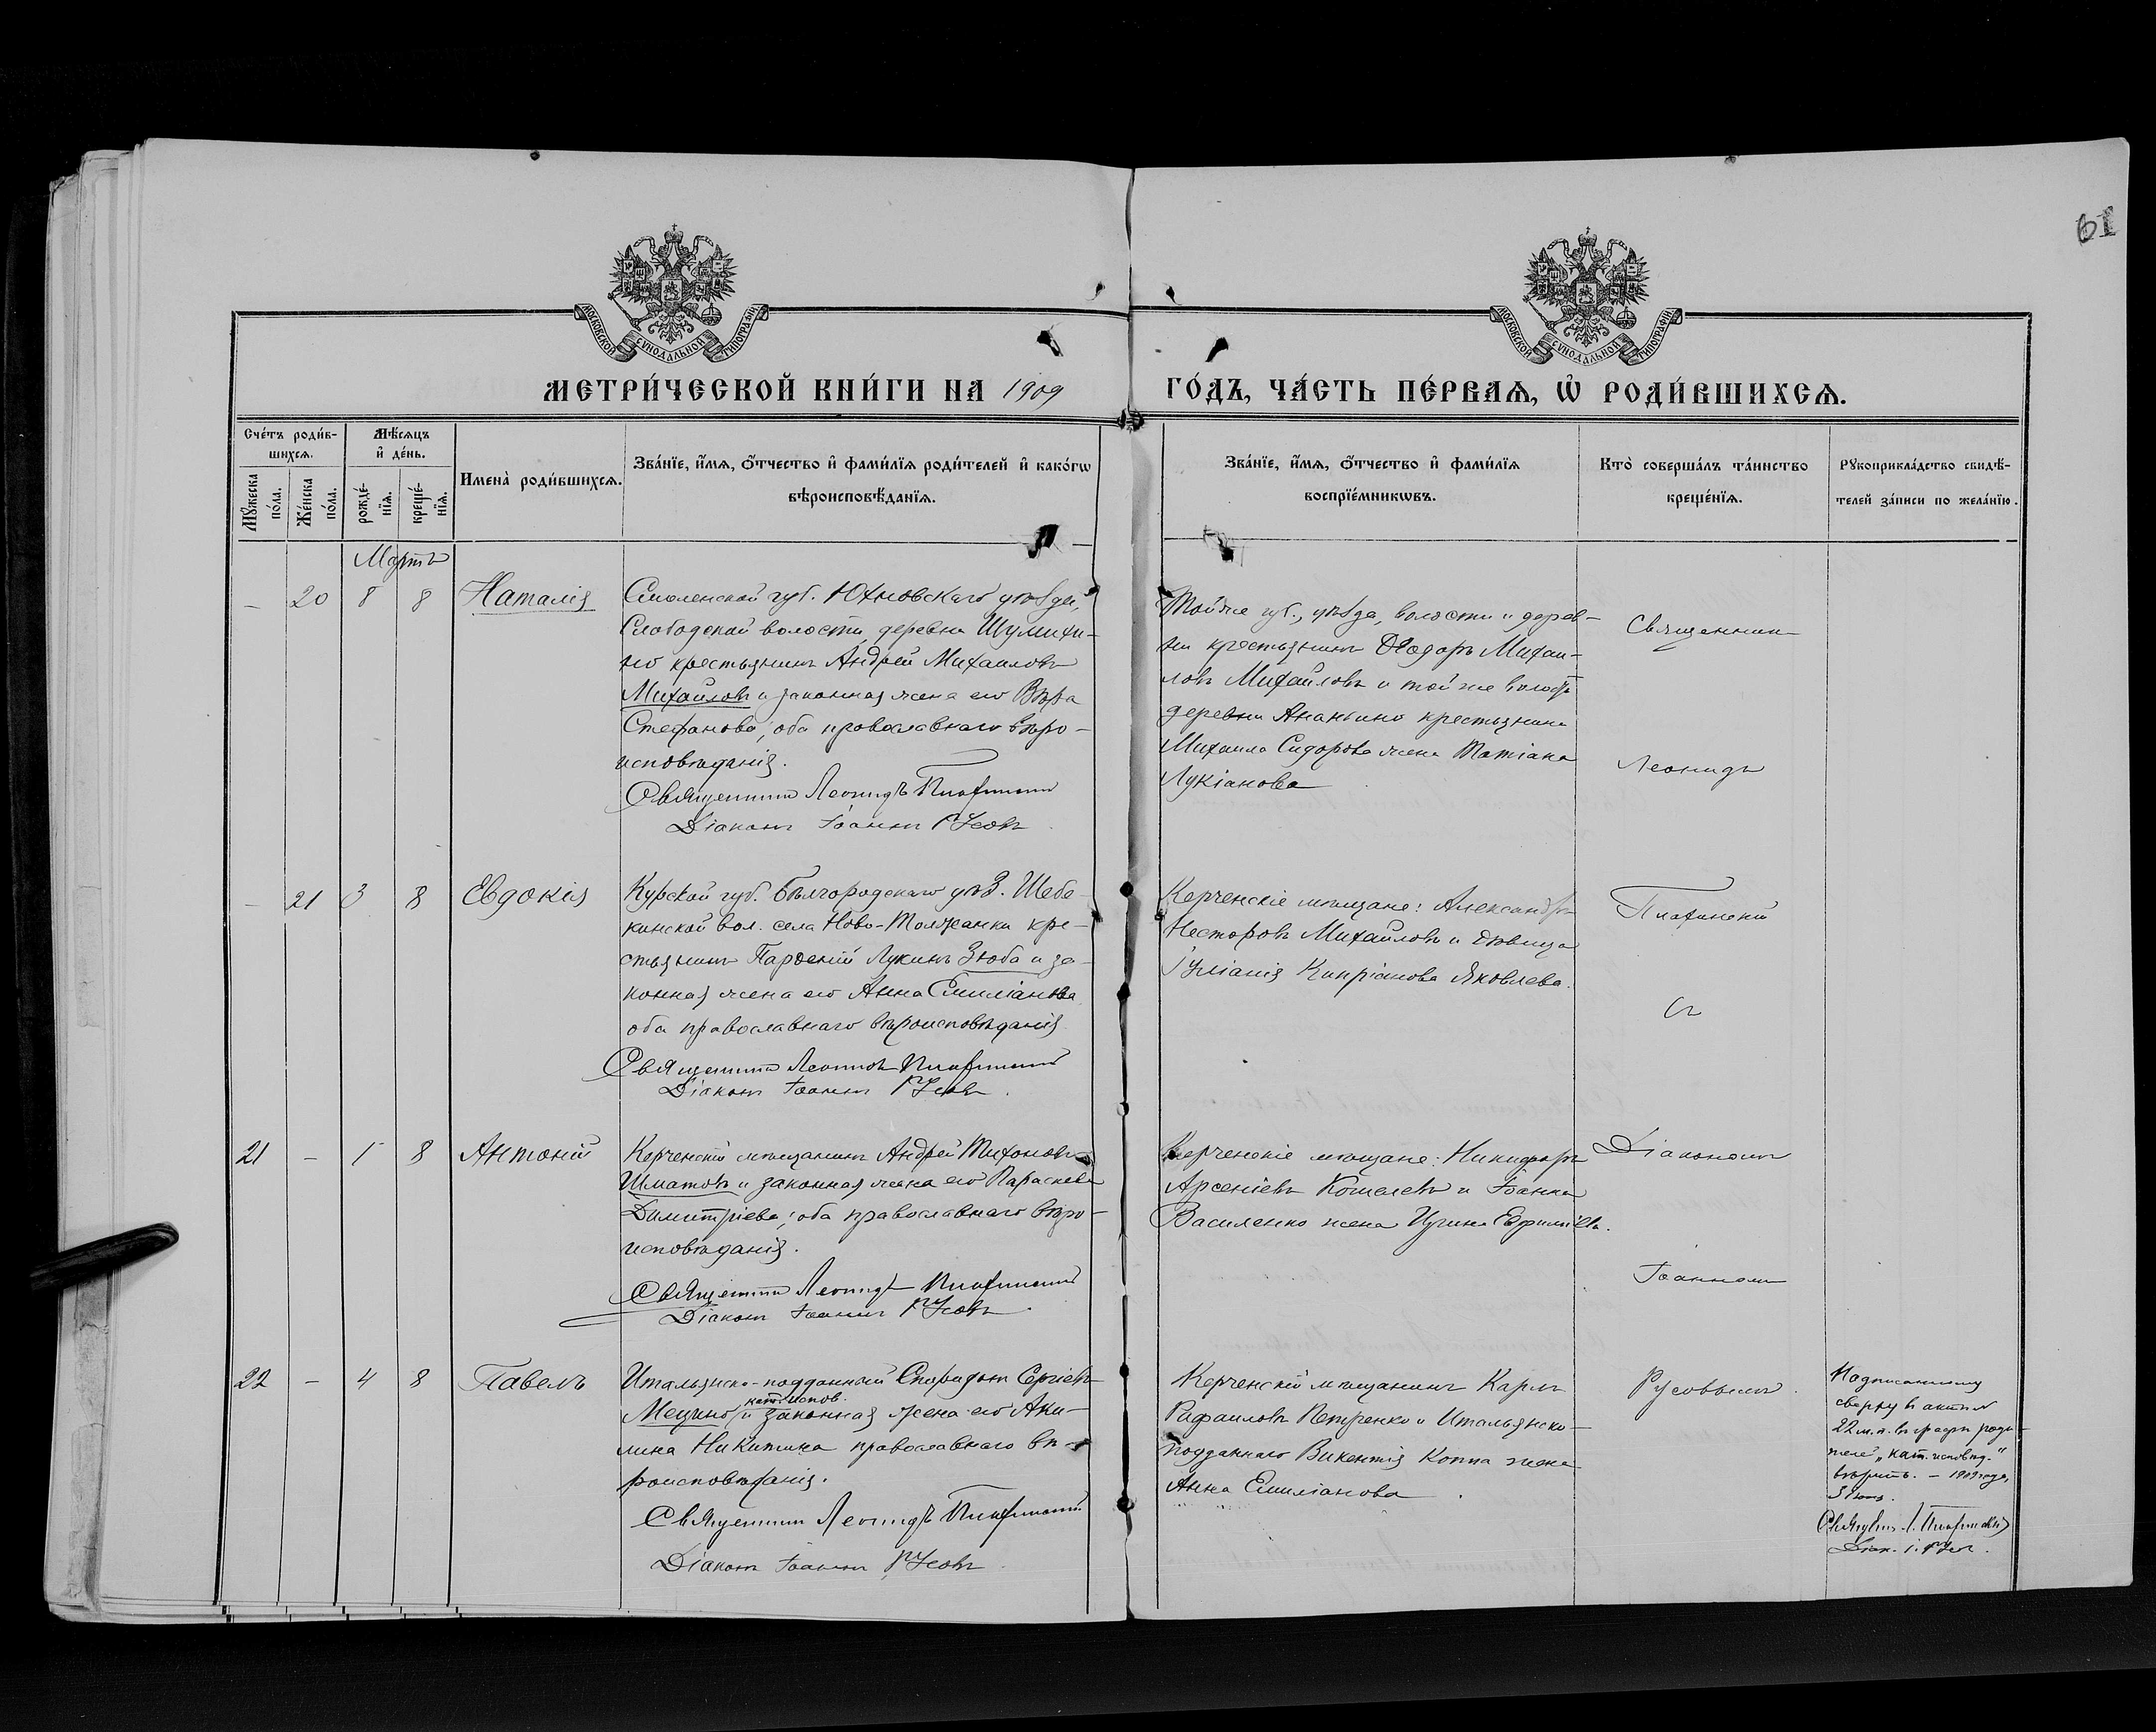 61
МОСКОВСКОЙ СѴНОДАЛЬНОЙ ТИПОГРАФІИ
МОСКОВСКОЙ СѴНОДАЛЬНОЙ ТИПОГРАФІИ
МЕТРИ́ЧЕСКОЙ КНИ́ГИ НА 1909
ГО́ДЪ, ЧА́СТЬ ПЕ́РВАѦ, Ѡ҆ РОДИ́ВШИХСѦ.
Сче́тъ роди́в-
шихсѧ.
Мꙋ́жеска по́ла.
Же́нска по́ла.
Мѣ́сѧцъ
и҆ де́нь.
рожде́-
нїѧ.
креще́-
нїѧ.
Имена̀ роди́вшихсѧ.
Зва́нїе, и҆́мѧ, ѻ҆́тчество и҆ фами́лїѧ роди́телей и҆ како́гѡ
вѣроисповѣ́данїѧ.
Зва́нїе, и҆́мѧ, ѻ҆́тчество и҆ фами́лїѧ
воспрїе́мникѡвъ.
Кто̀ соверша́лъ та́инство
креще́нїѧ.
Рꙋкоприкла́дство свидѣ́-
телей за́писи по жела́нїю.
Мартъ
– 20 8 8 Наталія
Смоленской губ. Юхновскаго уѣзда,
Слободской волости, деревни Шумихи-
но крестьянинъ Андрей Михаиловъ
Михайловъ и законная жена его Вѣра
Стефанова; оба православнаго вѣро-
исповѣданія.
Священникъ Леонидъ
Діаконъ Іоаннъ Русовъ.
Тойже губ., уѣзда, волости и дерев-
ни крестьянинъ Ѳеодоръ Михаи-
ловъ Михайловъ и той же волости
деревни Ананьино крестьянина
Михаила Сидорова жена Татіана
Лукіанова
Священник
Леонидъ
– 21 3 8 Евдокія
Курской губ. Бѣлгородскаго уѣз. Шебе-
кинской вол. села Ново-Толжанки кре-
стьянинъ Парѳеній Лукинъ Зюба и за-
конная жена его Анна Емиліанова,
оба православнаго вѣроисповѣданія
Священникъ Леонидъ
Діаконъ Іоаннъ Русовъ.
Керченскіе мѣщане: Александръ
Несторовъ Михайловъ и дѣвица
Іуліанія Кипріанова Яковлева.
съ
21 – 1 8 Антоній
Керченскій мѣщанинъ Андрей Тихоновъ
Шматовъ и законная жена его Параскева
Димитріева; оба православнаго вѣро-
исповѣданія.
Священникъ Леонидъ
Діаконъ Іоаннъ Русовъ.
Керченскіе мѣщане: Никифоръ
Арсеніевъ Кошелевъ и Іоанна
Василенко жена Ирина Евфиміева.
Діакономъ
Іоанномъ
22 – 4 8 Павелъ
Итальянско-подданный Спиридонъ Сергіевъ
кат. испов.
Мецино и законная жена его Аки-
лина Никитина православнаго вѣ-
роисповѣданія.
Священникъ Леонидъ
Діаконъ Іоаннъ Русовъ
Керченскій мѣщанинъ Карлъ
Рафаиловъ Петренко и Итальянско-
подданнаго Викентія Коппа жена
Анна Емиліанова.
Русовымъ.
Надписанному
сверху въ актѣ №
22 м. п. въ графѣ роди-
теле „кат. исповѣд."
вѣрить. – 1909 года,
Діак. І. Русовъ.